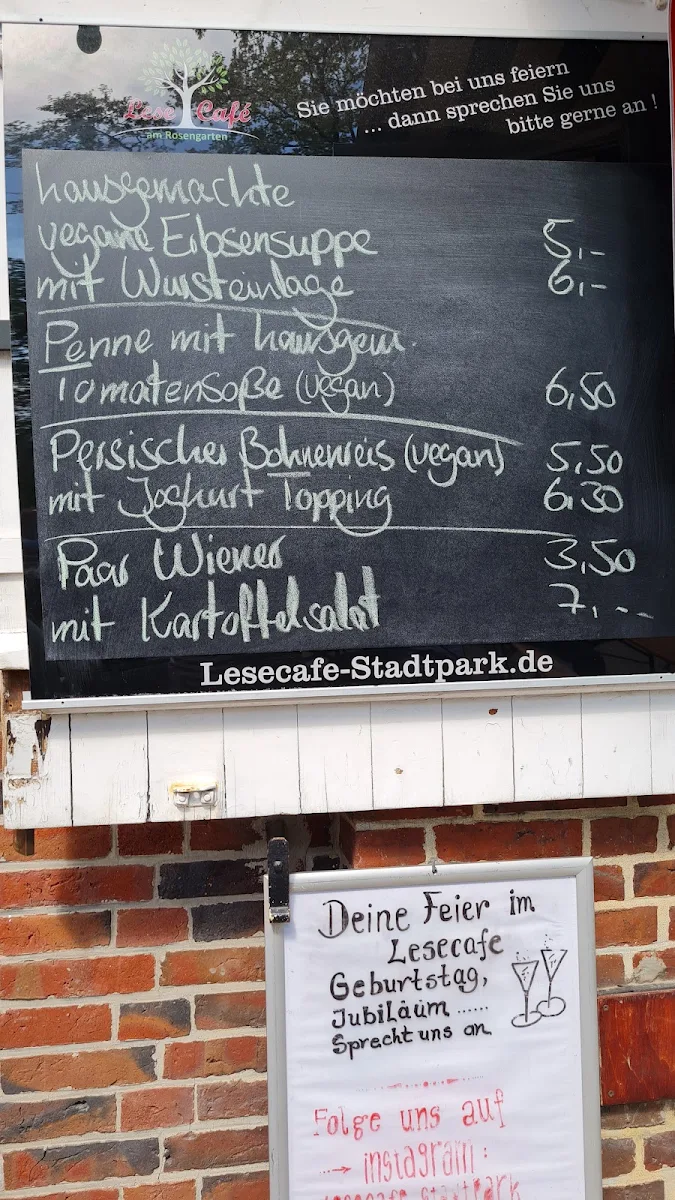 Lese Café
am Rosengarten
Sie möchten bei uns feiern
... dann sprechen Sie uns
bitte gerne an !
hausgemachte
vegane Erbsensuppe 5,-
mit Wursteinlage 6,-
Penne mit hausgem.
Tomatensoße (vegan) 6,50
Persischer Bohnenreis (vegan) 5,50
mit Joghurt Topping 6,30
Paar Wiener 3,50
mit Kartoffelsalat 7,--
Lesecafe-Stadtpark.de
Deine Feier im
Lesecafe
Geburtstag,
Jubiläum ......
Sprecht uns an
Folge uns auf
→ instagram:
lesecafe_stadtpark